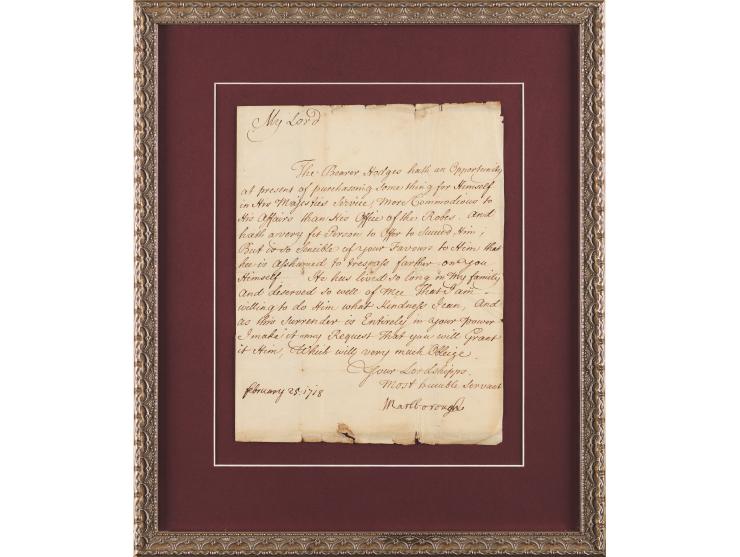 My Lord
The Bearer Hodges hath an Opportunity
at present of purchasing Some thing for Himself
in His Majesties Service, More Commodious to
His Affairs than His Office of the Robes. And
hath a very fit Person to Offer to Succeed Him;
But is so Sencible of your Favours to Him that
hee is Asshamed to trespass farther on you
Himself He has lived so long in my family
And deserved so well of Mee That I am
willing to do Him what Kindness I can, And
as this Surrender is Entirely in your power
I make it my Request That you will Grant
it Him, Which will very much Obleige
Your Lordshipps
Most humble Servant
february 25: 1718
Marlborough